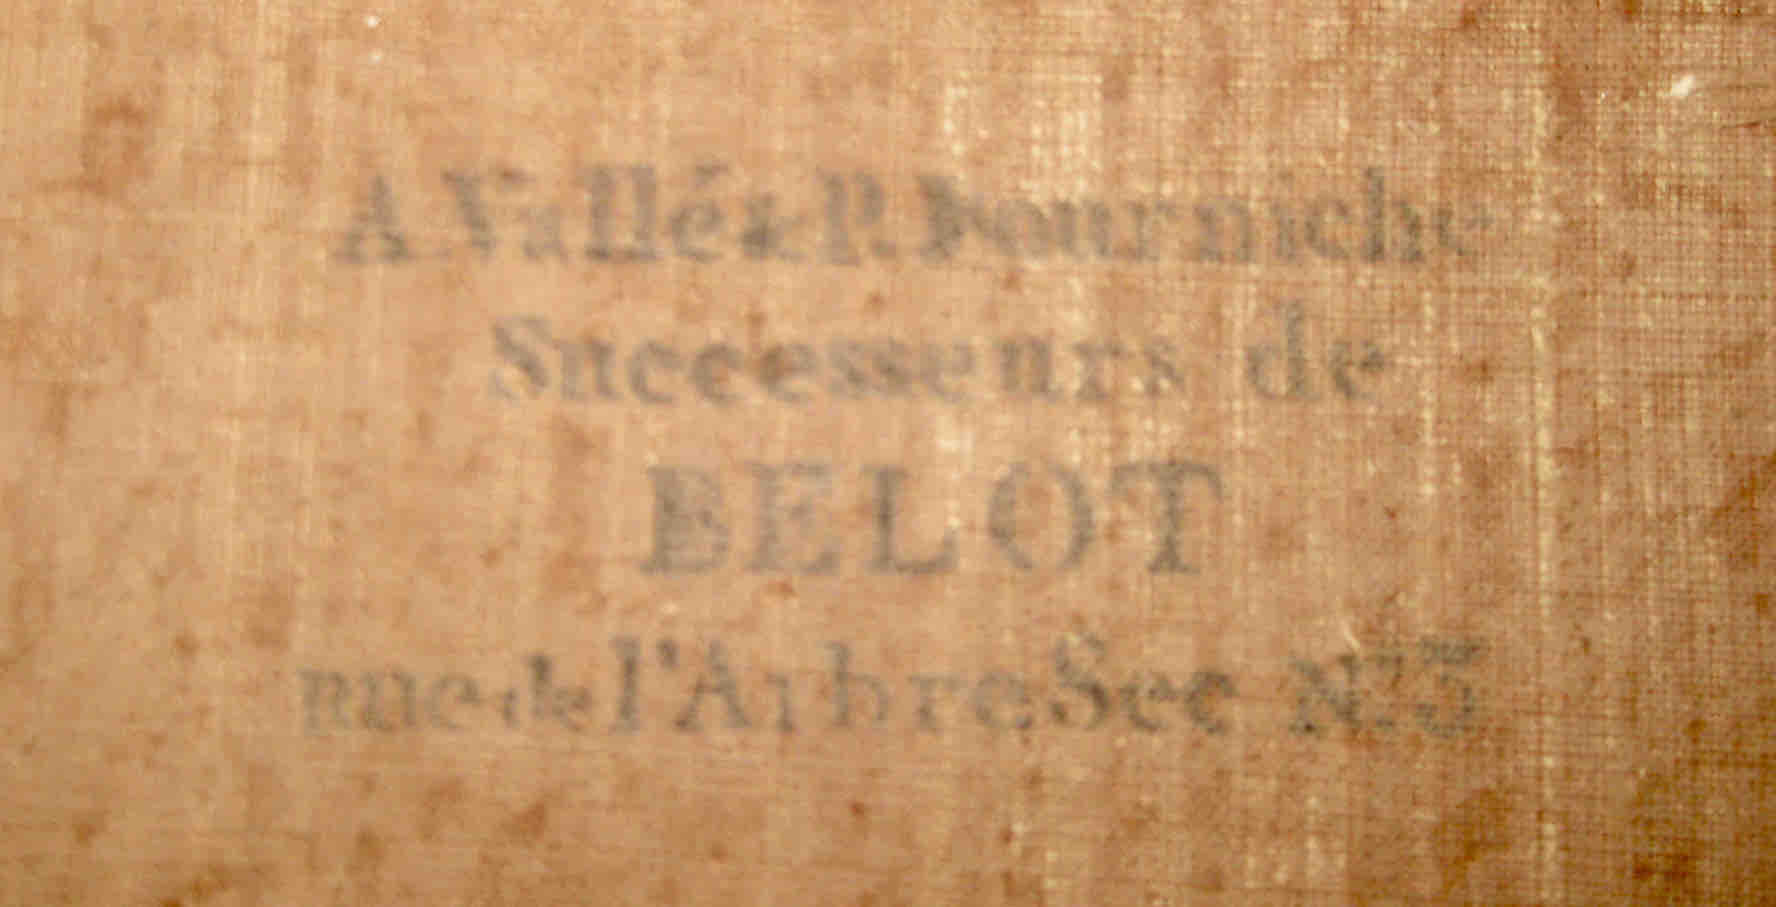 A Vallé & P. Bourniche
Successeurs de
BELOT
rue de l'Arbre Sec N.° 3